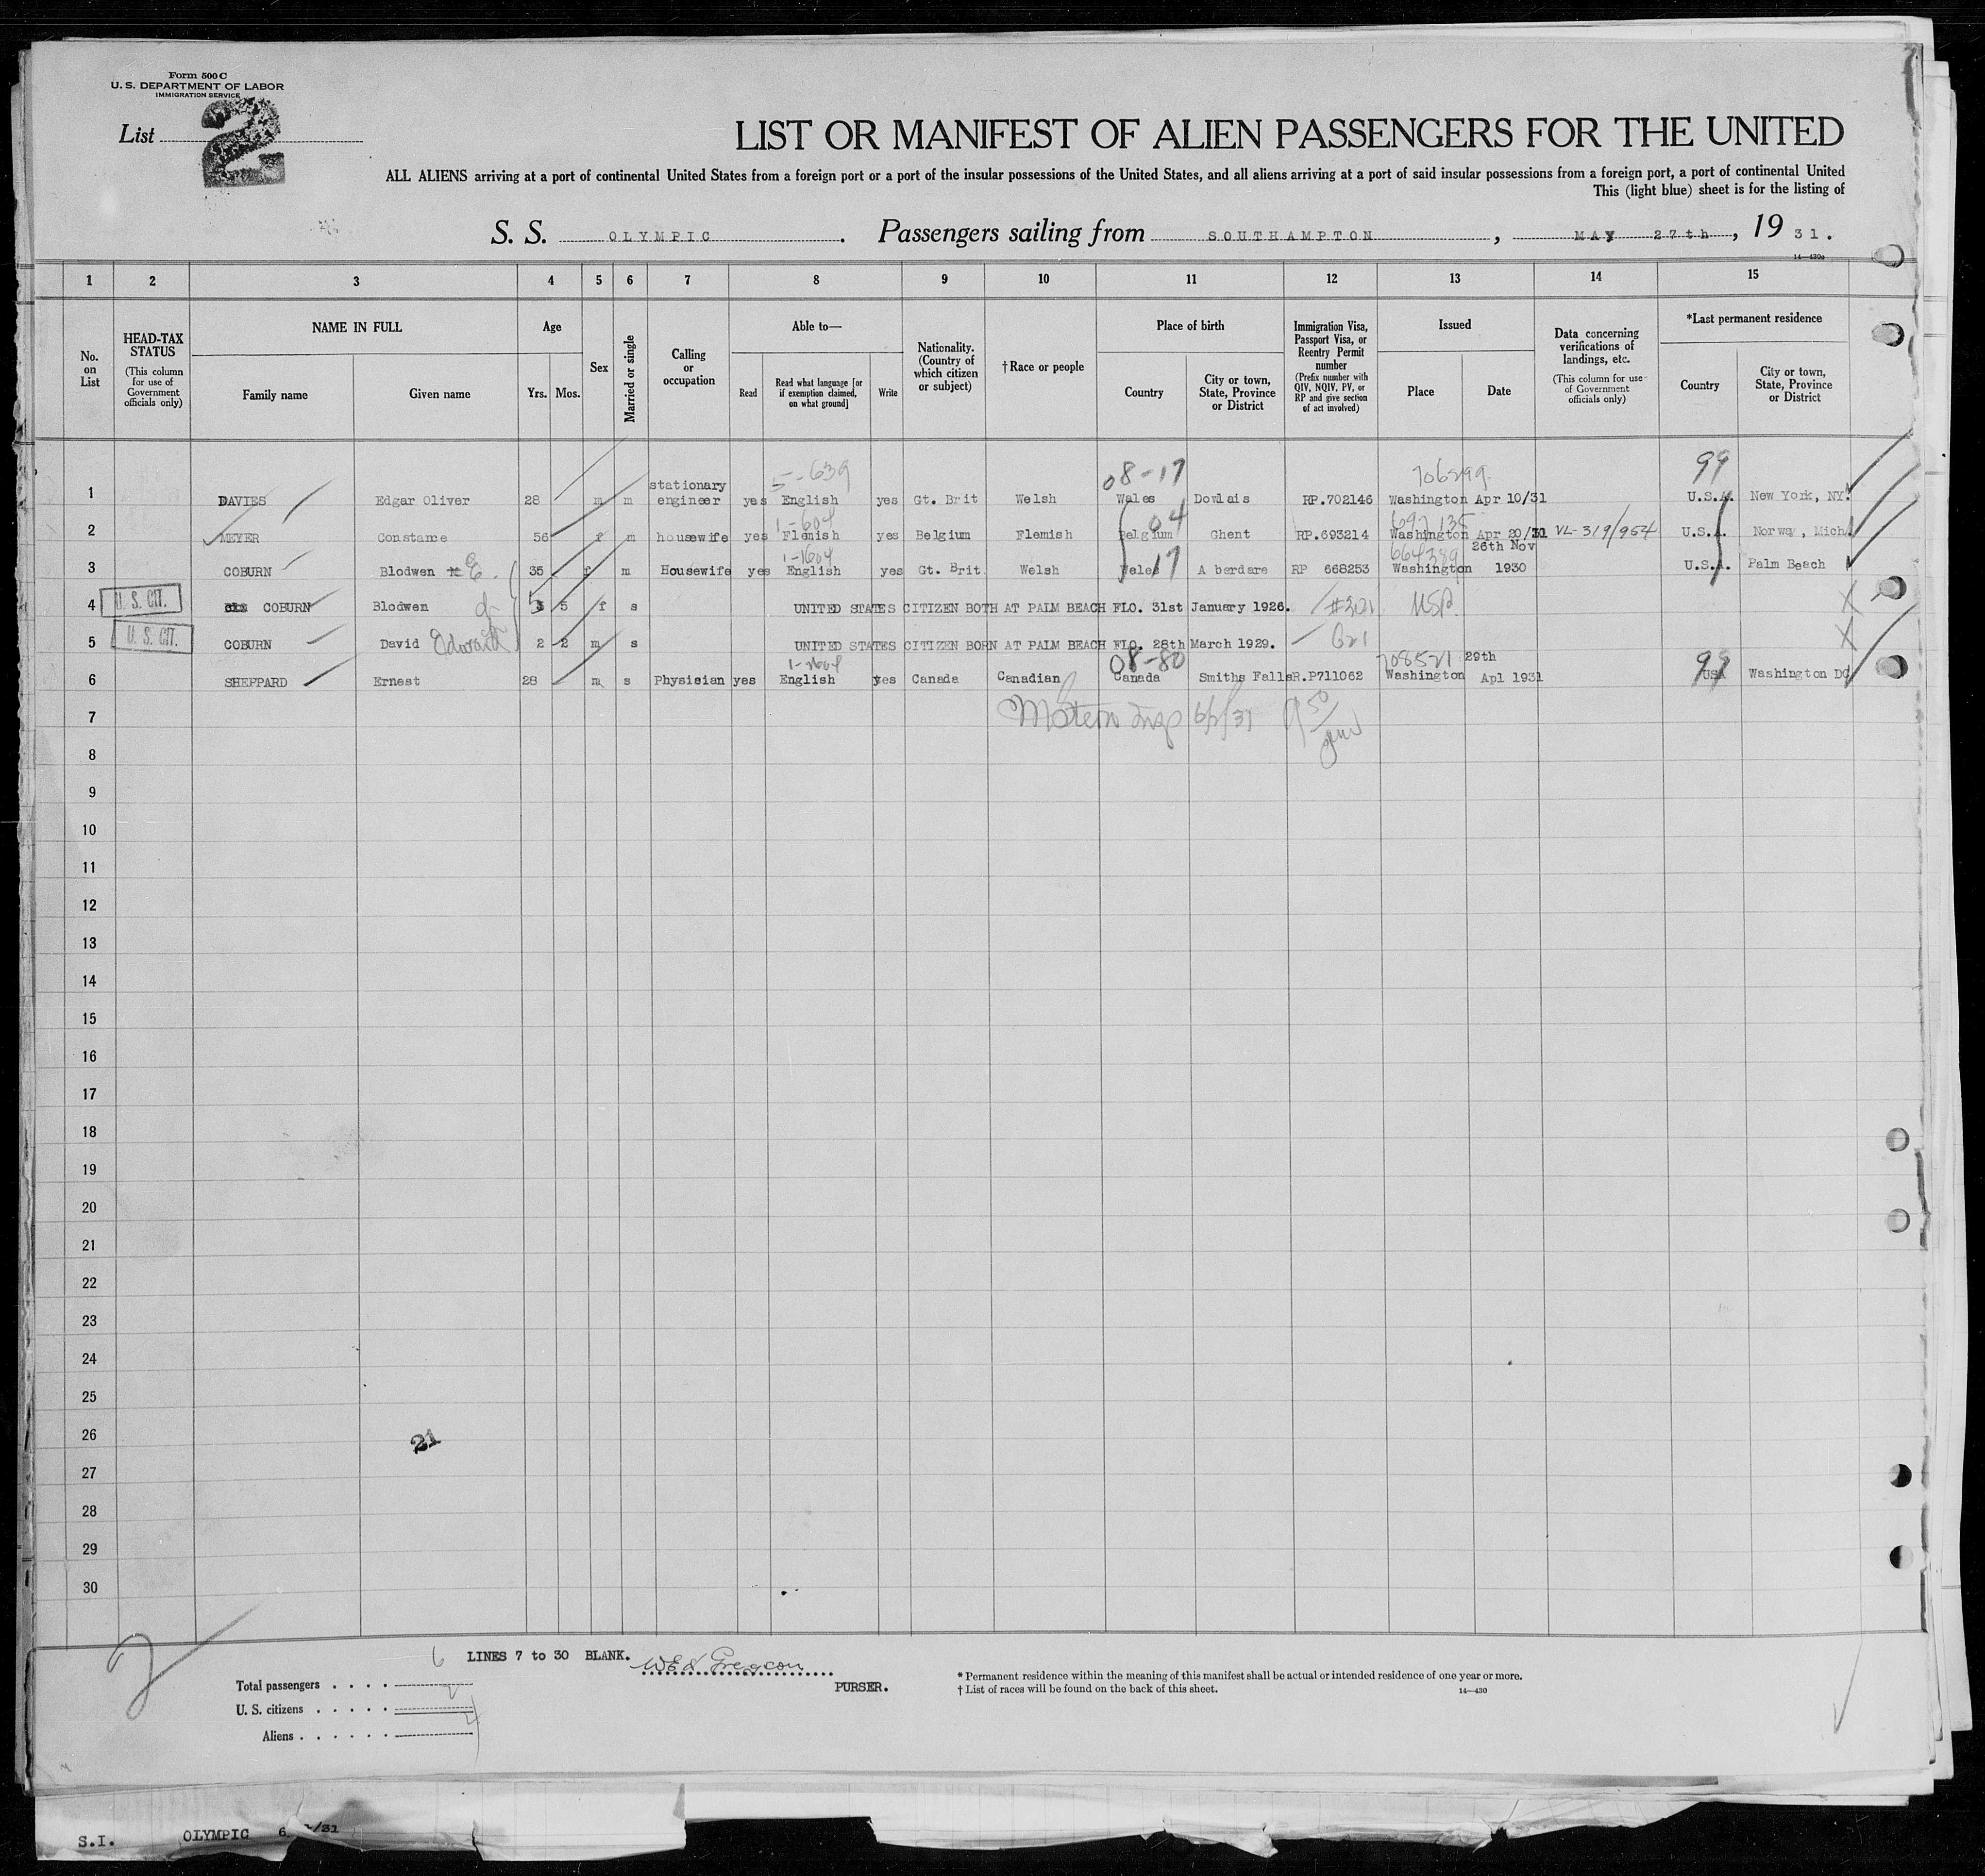 Form 500 C
U. S. DEPARTMENT OF LABOR
IMMIGRATION SERVICE
List 2
LIST OR MANIFEST OF ALIEN PASSENGERS FOR THE UNITED
ALL ALIENS arriving at a port of continental United States from a foreign port or a port of the insular possessions of the United States, and all aliens arriving at a port of said insular possessions from a foreign port, a port of continental United
This (light blue) sheet is for the listing of
S. S. OLYMPIC. Passengers sailing from SOUTHAMPTON, MAY 27th, 19 31.
14—430c
1 2 3 4 5 6 7 8 9 10 11 12 13 14 15
No. on List
HEAD-TAX STATUS
(This column for use of Government officials only)
NAME IN FULL
Family name
Given name
Age
Yrs.
Mos.
Sex
Married or single
Calling or occupation
Able to—
Read
Read what language [or if exemption claimed, on what ground]
Write
Nationality. (Country of which citizen or subject)
† Race or people
Place of birth
Country
City or town, State, Province or District
Immigration Visa, Passport Visa, or Reentry Permit number
(Prefix number with QIV, NQIV, PV, or RP and give section of act involved)
Issued
Place
Date
Data concerning verifications of landings, etc.
(This column for use of Government officials only)
*Last permanent residence
Country
City or town, State, Province or District
5-639 08-17 706299 99
1 DAVIES Edgar Oliver 28 m m stationary engineer yes English yes Gt. Brit Welsh Wales Dowlais RP.702146 Washington Apr 10/31 U.S.A. New York, NY.
1-604 04 692135
2 MEYER Constance 56 f m housewife yes Flemish yes Belgium Flemish Belgium Ghent RP.693214 Washington Apr 20/31 VL-319/954 U.S.A. Norway, Mich
1-1604 17 664389 26th Nov
3 COBURN Blodwen E. 35 f m Housewife yes English yes Gt. Brit Welsh Wales Aberdare RP 668253 Washington 1930 U.S.A. Palm Beach
4 U. S. CIT. COBURN Blodwen 5 5 f s UNITED STATES CITIZEN BOTH AT PALM BEACH FLO. 31st January 1926. #201 USA
5 U. S. CIT. COBURN David Edward 2 2 m s UNITED STATES CITIZEN BORN AT PALM BEACH FLO. 28th March 1929. 621
08-80 708521 29th 99
6 SHEPPARD Ernest 28 m s Physisian yes English yes Canada Canadian Canada Smiths Falls R.P711062 Washington Apl 1931 USA Washington DC
7
8
9
10
11
12
13
14
15
16
17
18
19
20
21
22
23
24
25
26
27
28
29
30
21
6 LINES 7 to 30 BLANK.
PURSER.
Total passengers
U. S. citizens
Aliens
* Permanent residence within the meaning of this manifest shall be actual or intended residence of one year or more.
† List of races will be found on the back of this sheet.
14—430
2
S.I. OLYMPIC 6 /31